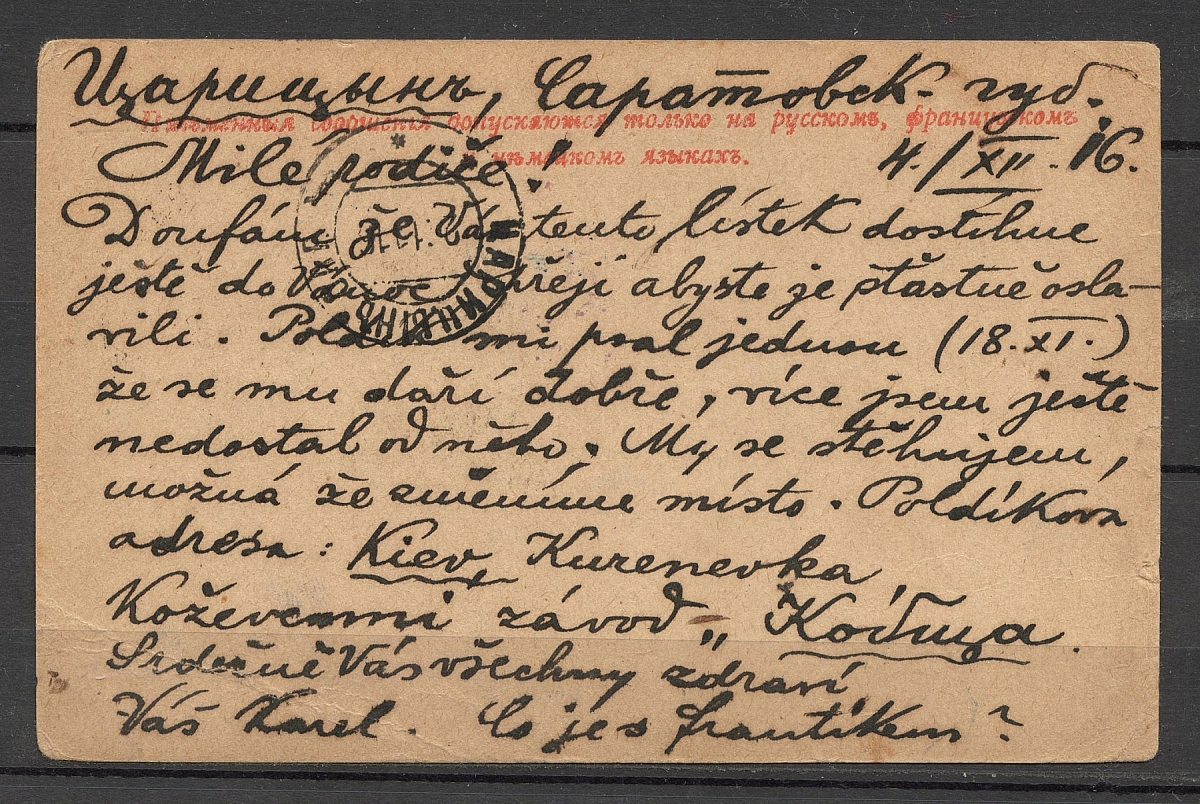 Царицынъ, Саратовск. губ.
Письменныя сообщенія допускаются только на русскомъ, французскомъ
нѣмецкомъ языкахъ.
Milé rodiče! 4./XII. 16.
Doufám že Vás tento lístek dostihne
ještě do Vánoc přeji abyste je šťastně osla-
vili. Poldík mi psal jednou (18.XI.)
že se mu daří dobře, více jsem ještě
nedostal od něho. My se stěhujem,
možná že změníme místo. Poldíkova
adresa: Kiev, Kurenevka
Koževenni závod „Кобца
Srdečně Vás všechny zdraví
Váš Karel. Co je s Frantíkem?
ЦАРИЦЫНЪ